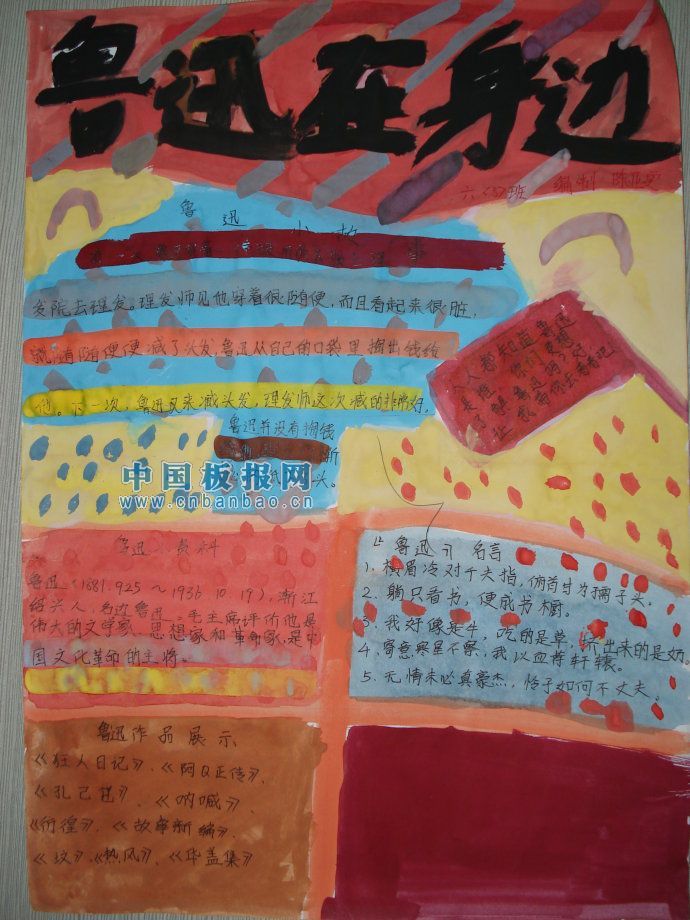 鲁迅在身边
六 班 编制
鲁迅小故事
发院去理发。理发师见他穿着很随便,而且看起来很脏,
就随随便便减了头发,鲁迅从自己的口袋里掏出钱给
他。下一次,鲁迅又来减头发,理发师这次减的非常好,
鲁迅并没有掏钱
头。
人人都知道鲁迅
是谁,你们更想
了解鲁迅吗?
让我带你去看看吧
中国板报网
www.cnbanbao.cn
鲁迅小资料
鲁迅(1881.9.25~1936.10.19),浙江
绍兴人,名迅鲁迅,毛主席评价他是
伟大的文学家、思想家和革命家,是中
国文化革命的主将。
鲁迅 名言
1、横眉冷对千夫指,俯首甘为孺子头。
2、躺只看书,便成书橱。
3、我好像是牛,吃的是草,挤出来的是奶。
4、寄意寒星不察,我以血荐轩辕。
5、无情未必真豪杰,怜子如何不丈夫。
鲁迅作品展示
《狂人日记》、《阿Q正传》、
《孔己甚》、《呐喊》、
《彷徨》、《故事新编》、
《坟》、《热风》、《华盖集》